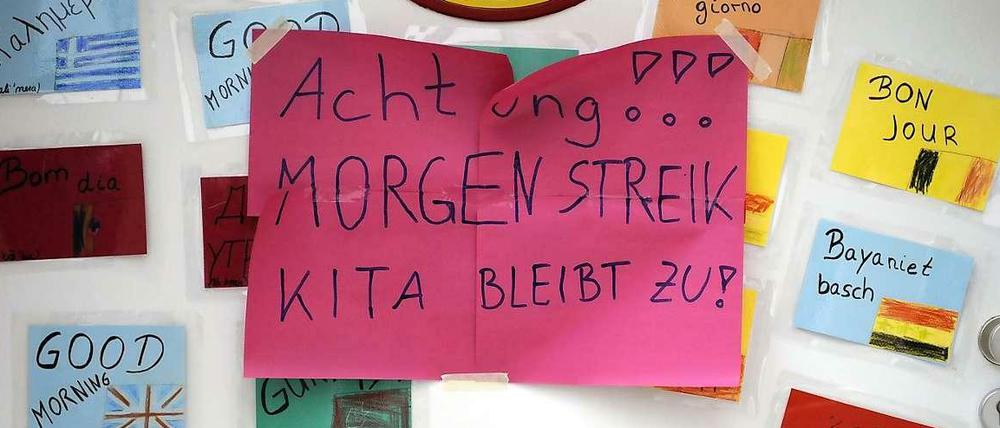 Achtung...!!!
MORGEN STREIK
KITA BLEIBT ZU!
GOOD
MORNI
giorno
BON
JOUR
Bom dia
Bayaniet
basch
GOOD
MORNING